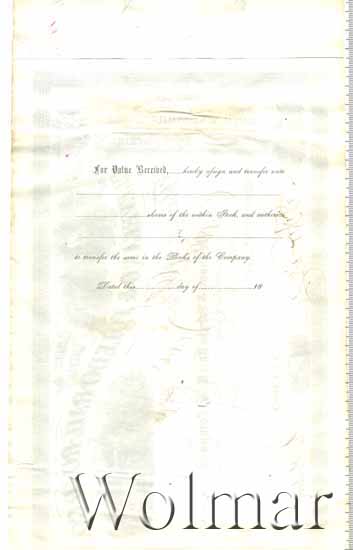 For Value Received, hereby assign and transfer unto
shares of the within Stock, and authorize
to transfer the same in the Books of the Company.
Dated this day of 18
Wolmar